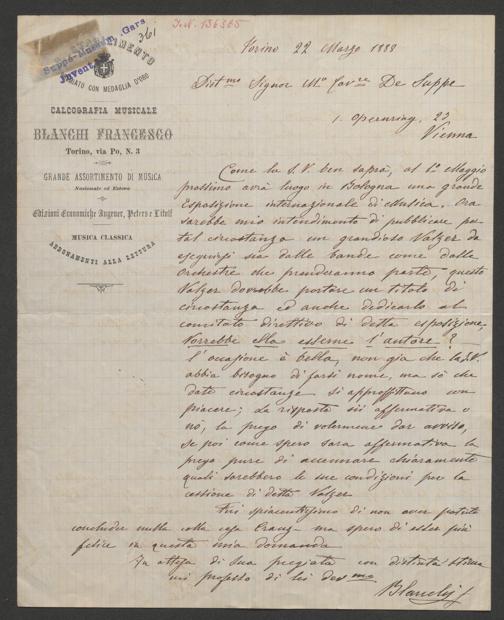 Ind. 136365
361
Suppé-Museum, Gars
STABILIMENTO
PREMIATO CON MEDAGLIA D'ORO
CALCOGRAFIA MUSICALE
BLANCHI FRANCESCO
Torino, via Po, N. 3
GRANDE ASSORTIMENTO DI MUSICA
Nazionale ed Estera
Edizioni Economiche Augener, Peters e Litolff
MUSICA CLASSICA
ABBONAMENTI ALLA LETTURA
Torino 22 Marzo 1888
Distmo Signor Mo Cavre De Suppe
1. Opernring, 23
Vienna
Come la S. V. ben saprà, al 1o Maggio
prossimo avrà luogo in Bologna una grande
esposizione internazionale di Musica. Ora
sarebbe mio intendimento di pubblicare per
tal circostanza un grandioso Valzer da
eseguirsi sia dalle bande come dalle
Orchestre che prenderanno parte, questo
Valzer dovrebbe portare un titolo di
circostanza ed anche dedicarlo al
comitato direttivo di detta esposizione,
Vorrebbe Ella esserne l'autore?
l'occasione è bella, non già che la S.V.
abbia bisogno di farsi nome, ma sò che
date circostanze si approfittano con
piacere; La risposta sii affermativa o
nò, la prego di volermene dar avviso,
se poi come spero sara affermativa la
prego pure di accennare chiaramente
quali sarebbero le sue condizioni per la
cessione di detto Valzer
Fui spiacentissimo di non aver potuto
concludere nulla colla casa Cranz - ma spero di esser più
felice in questa mia domanda
In attesa di sua pregiata con distinta stima
mi professo di Lei devmo
Blanchi f